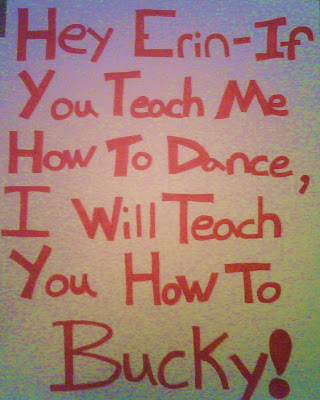 Hey Erin-If
You Teach Me
How To Dance,
I Will Teach
You How To
Bucky!